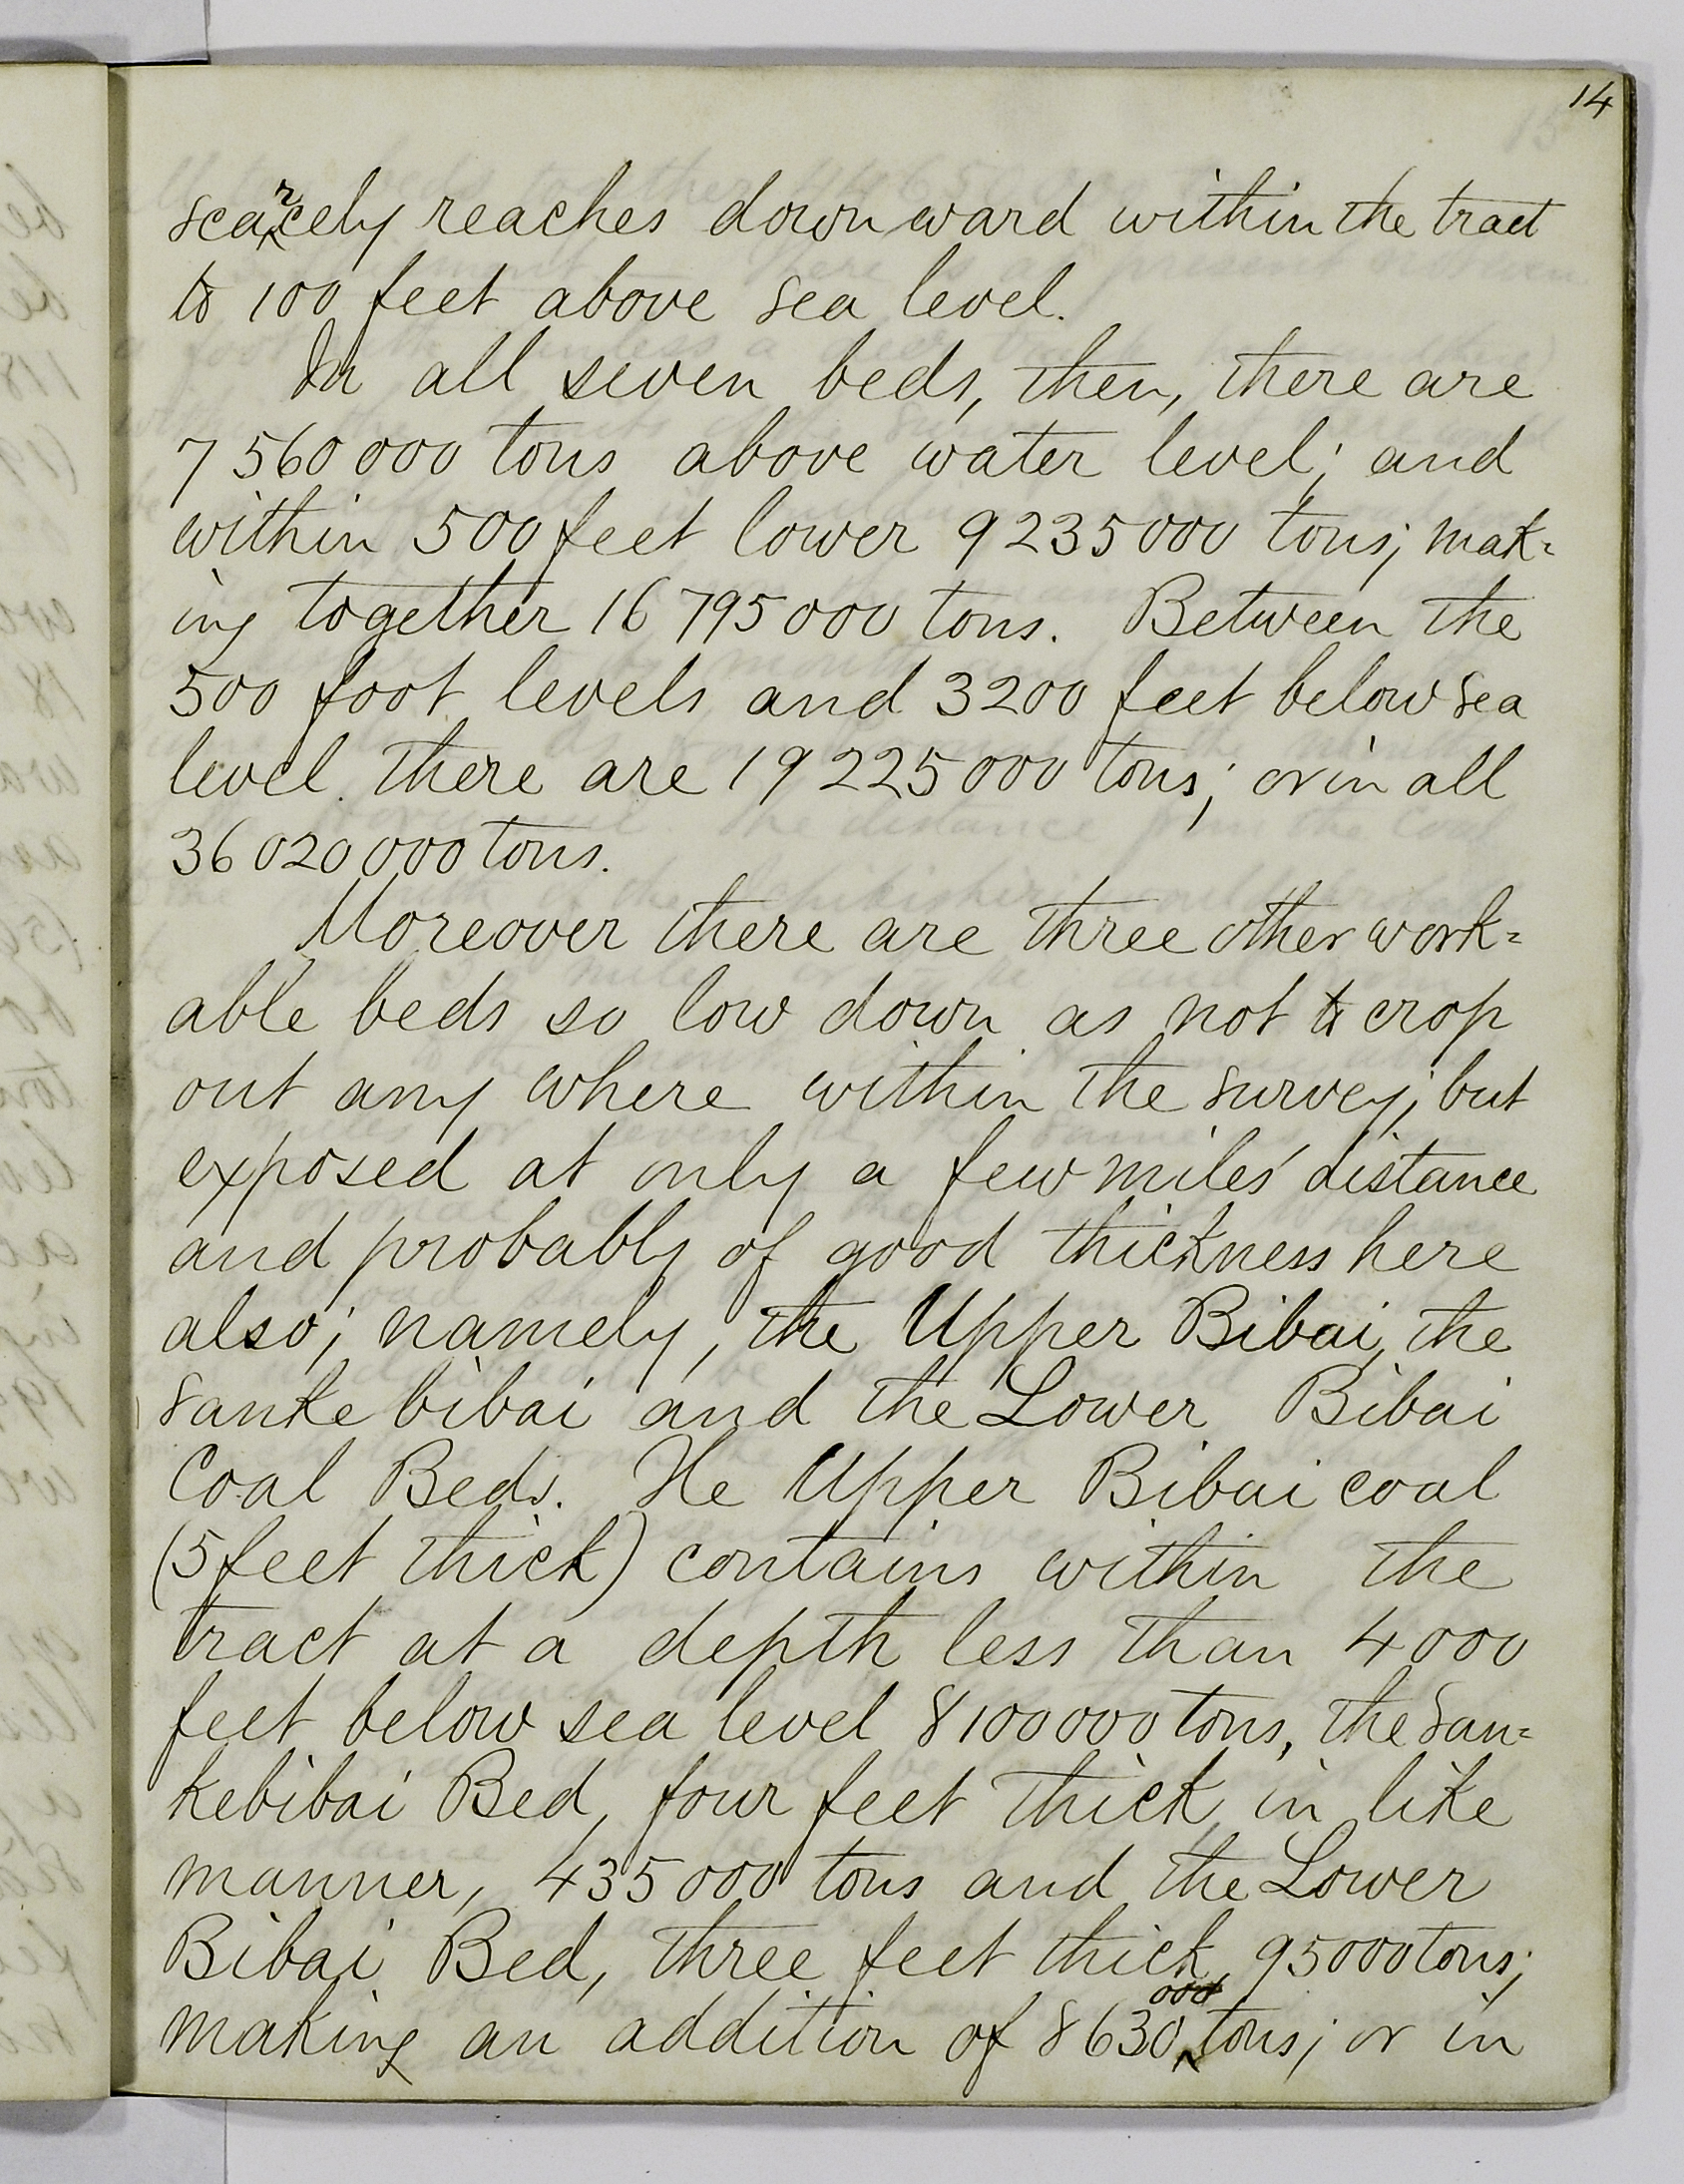 14
scarcely reaches downward within the tract
to 100 feet above sea level.
In all seven beds, then, there are
7 560 000 tons above water level; and
within 500 feet lower 9 235 000 tons; mak=
ing together 16 795 000 tons. Between the
500 foot levels and 3200 feet below sea
level there are 19 225 000 tons; or in all
36 020 000 tons.
Moreover there are three other work=
able beds so low down as not to crop
out any where within the survey; but
exposed at only a few miles' distance
and probably of good thickness here
also; namely, the Upper Bibai, the
Sankebibai and the Lower Bibai
Coal Beds. The Upper Bibai coal
(5 feet thick) contains within the
tract at a depth less than 4000
feet below sea level 8 100 000 tons, the San=
kebibai Bed, four feet thick, in like
manner, 435 000 tons and the Lower
Bibai Bed, three feet thick, 95 000 tons;
making an addition of 8 630 000 tons; or in